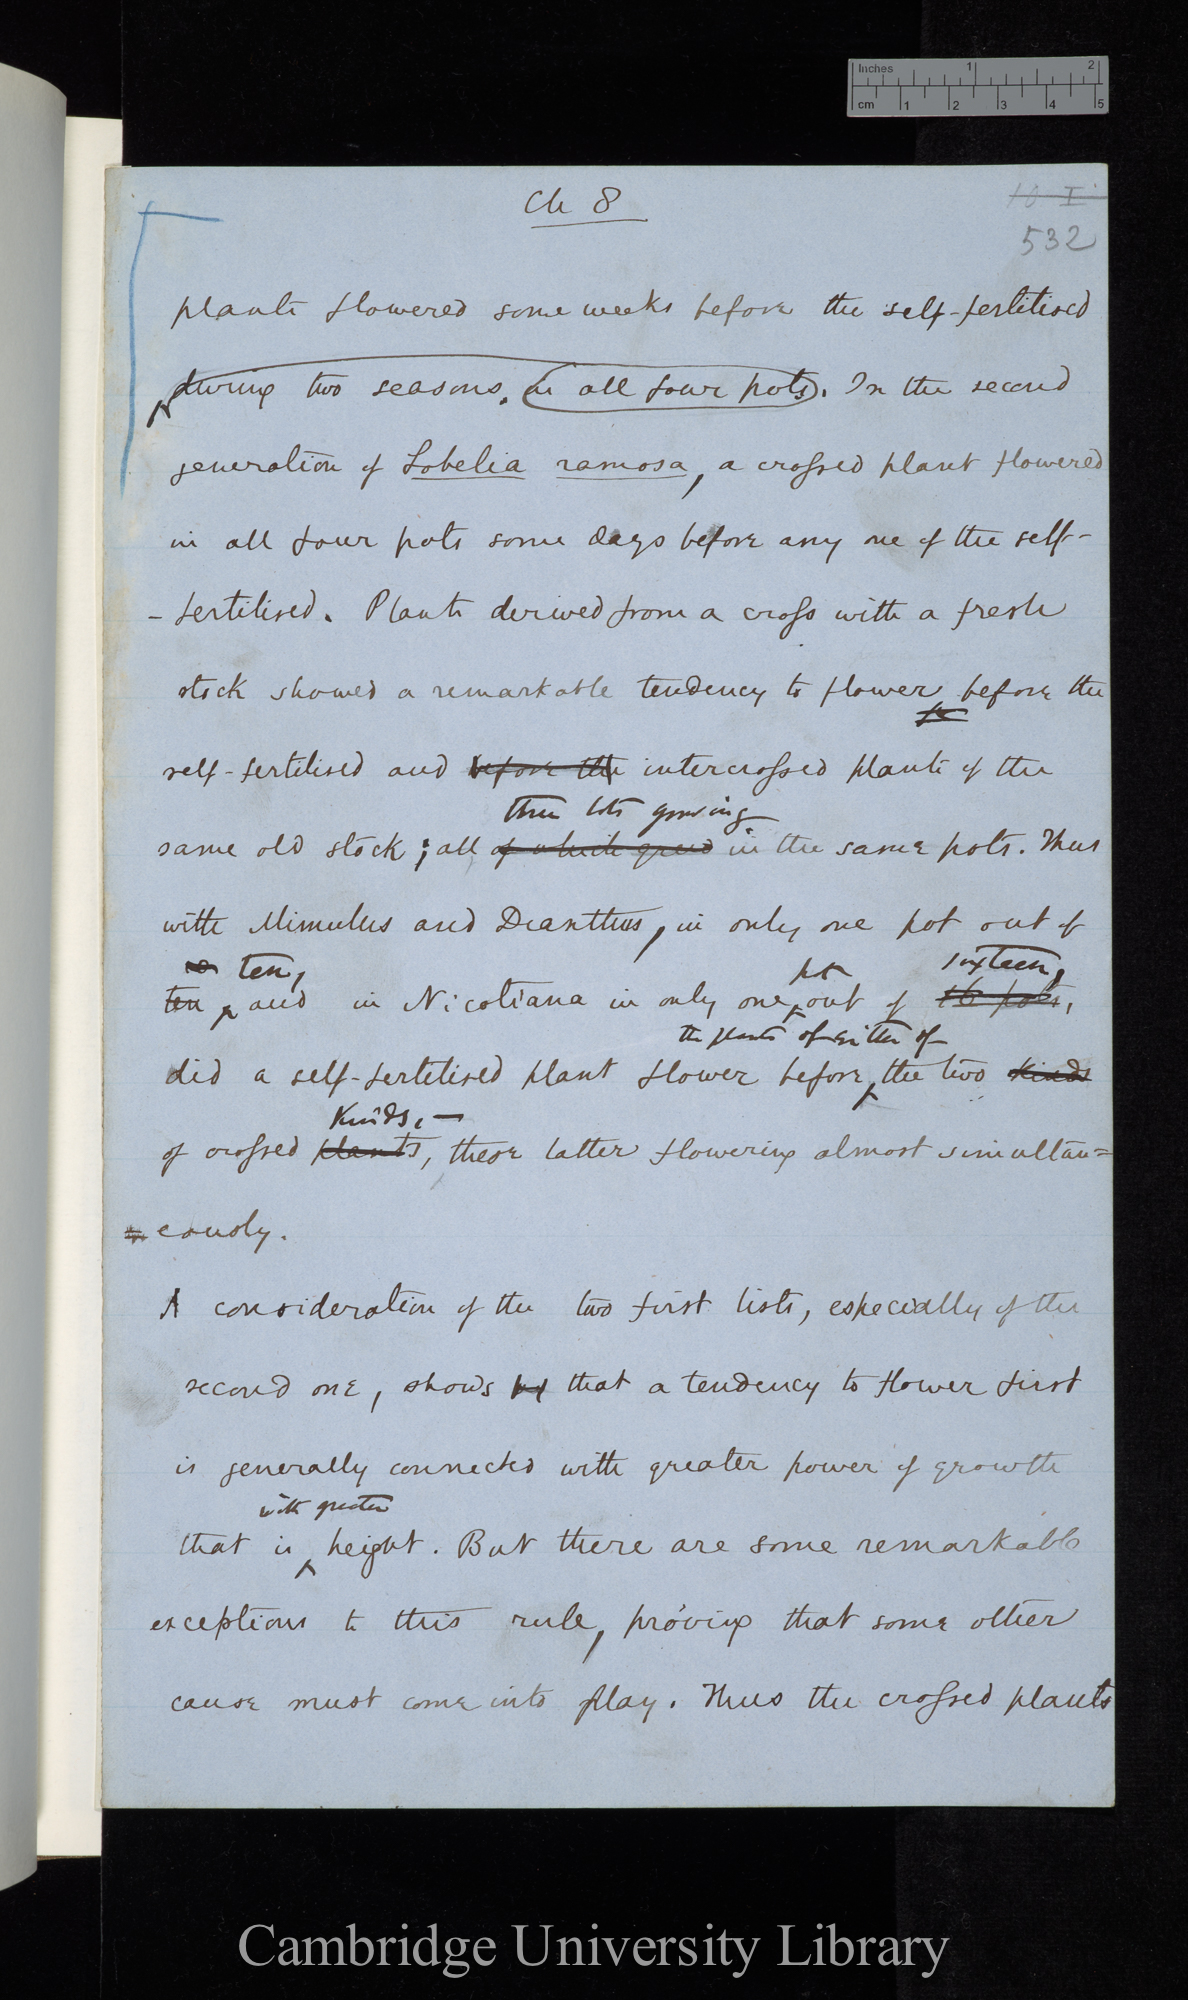 Inches 1 2
cm 1 2 3 4 5
Ch 8
10 I
532
plants flowered some weeks before the self-fertilised
during two seasons, in all four pots. In the second
generation of Lobelia ramosa, a crossed plant flowered
in all four pots some days before any one of the self-
-fertilised. Plants derived from a cross with a fresh
stock showed a remarkable tendency to flower before the
self-fertilised and before the intercrossed plants of the
three lots growing
same old stock; all of which grew in the same pots. Thus
with Mimulus and Dianthus, in only one pot out of
ten, pot sixteen,
ten, and in Nicotiana in only one out of 16 pots,
the plants of either of
did a self-fertilised plant flower before the two kinds
kinds, —
of crossed plants, these latter flowering almost simultan=
eously.
A consideration of the two first lists, especially of the
second one, shows that a tendency to flower first
is generally connected with greater power of growth
with greater
that is height. But there are some remarkable
exceptions to this rule, proving that some other
cause must come into play. Thus the crossed plants
Cambridge University Library